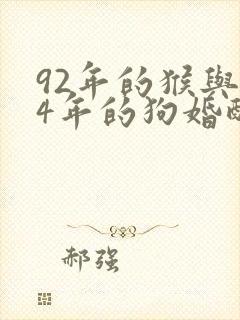 92年的猴與
4年的狗婚
郝强